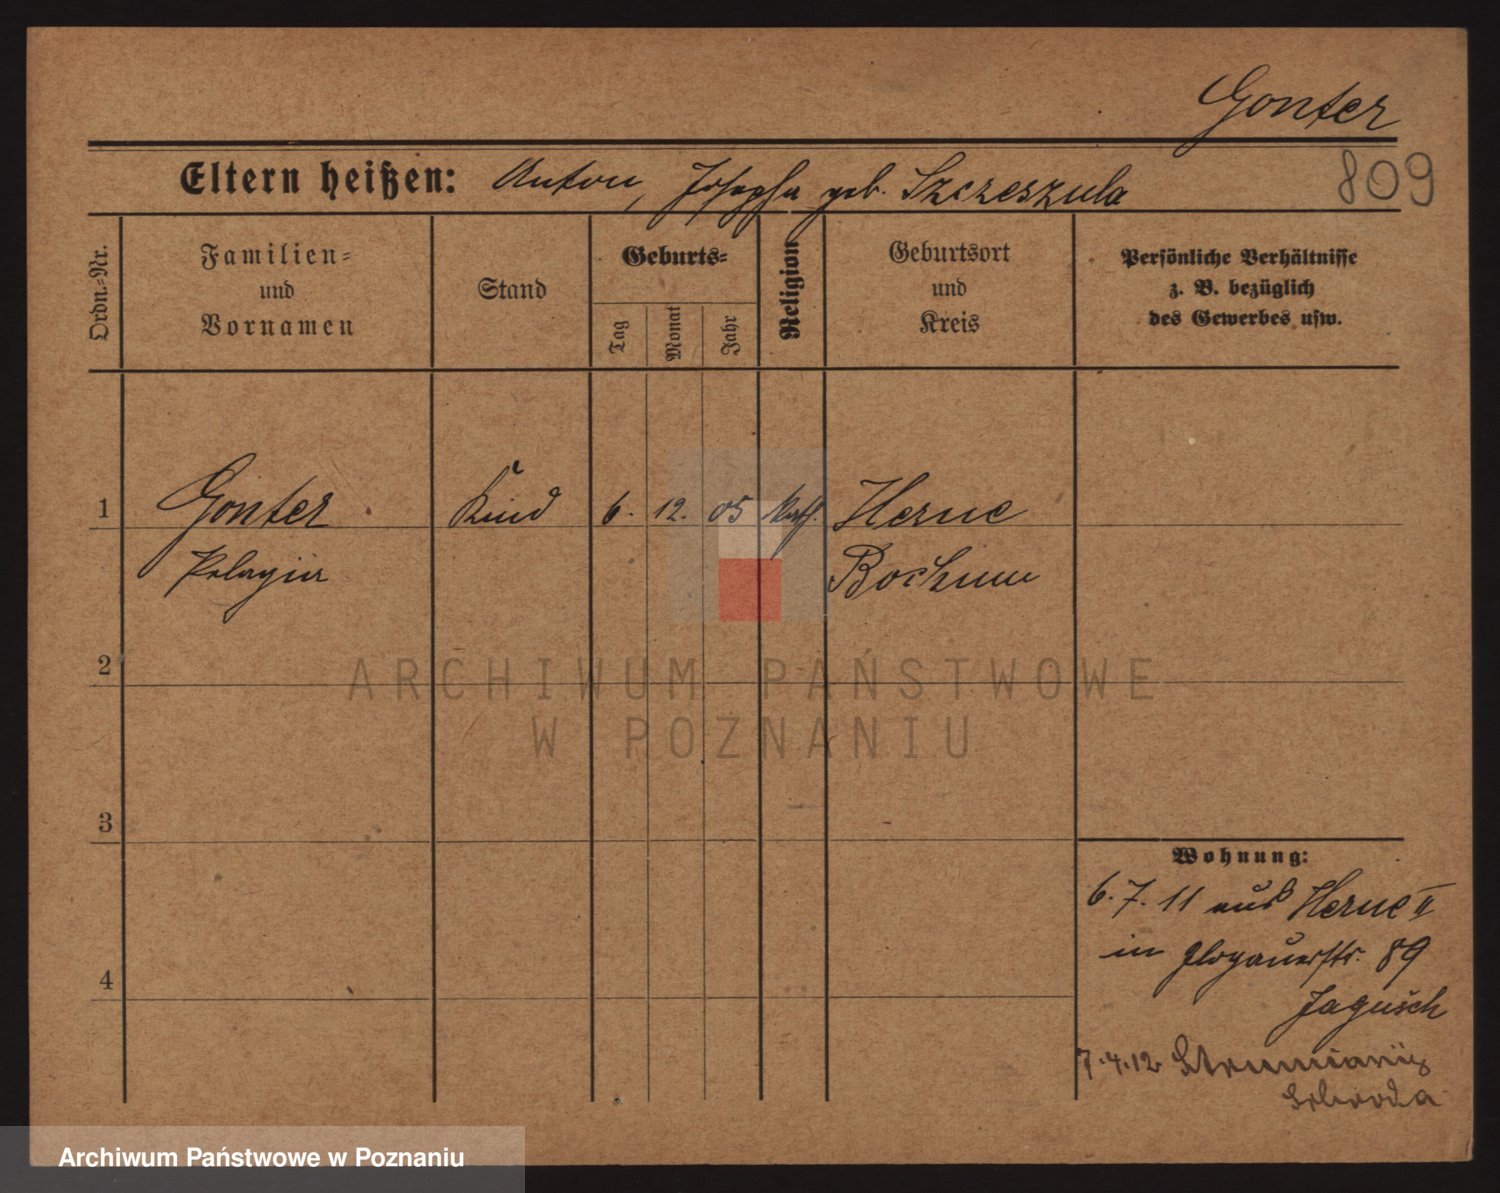 Gonter
809
Eltern heißen: Anton, Josepha geb. Szczeszula
Ordn.-Nr.
Familien-
und
Vornamen
Stand
Geburts-
Tag
Monat
Jahr
Religion
Geburtsort
und
Kreis
Persönliche Verhältnisse
z. B. bezüglich
des Gewerbes usw.
1 Gonter Kind 6. 12. 05 kath. Herne
Pelagia Bochum
2
3
4
Wohnung:
6.7.11 aus Herne II
in Glogauerstr. 89
Jagusch
7.4.12
Schroda
ARCHIWUM PAŃSTWOWE
W POZNANIU
Archiwum Państwowe w Poznaniu